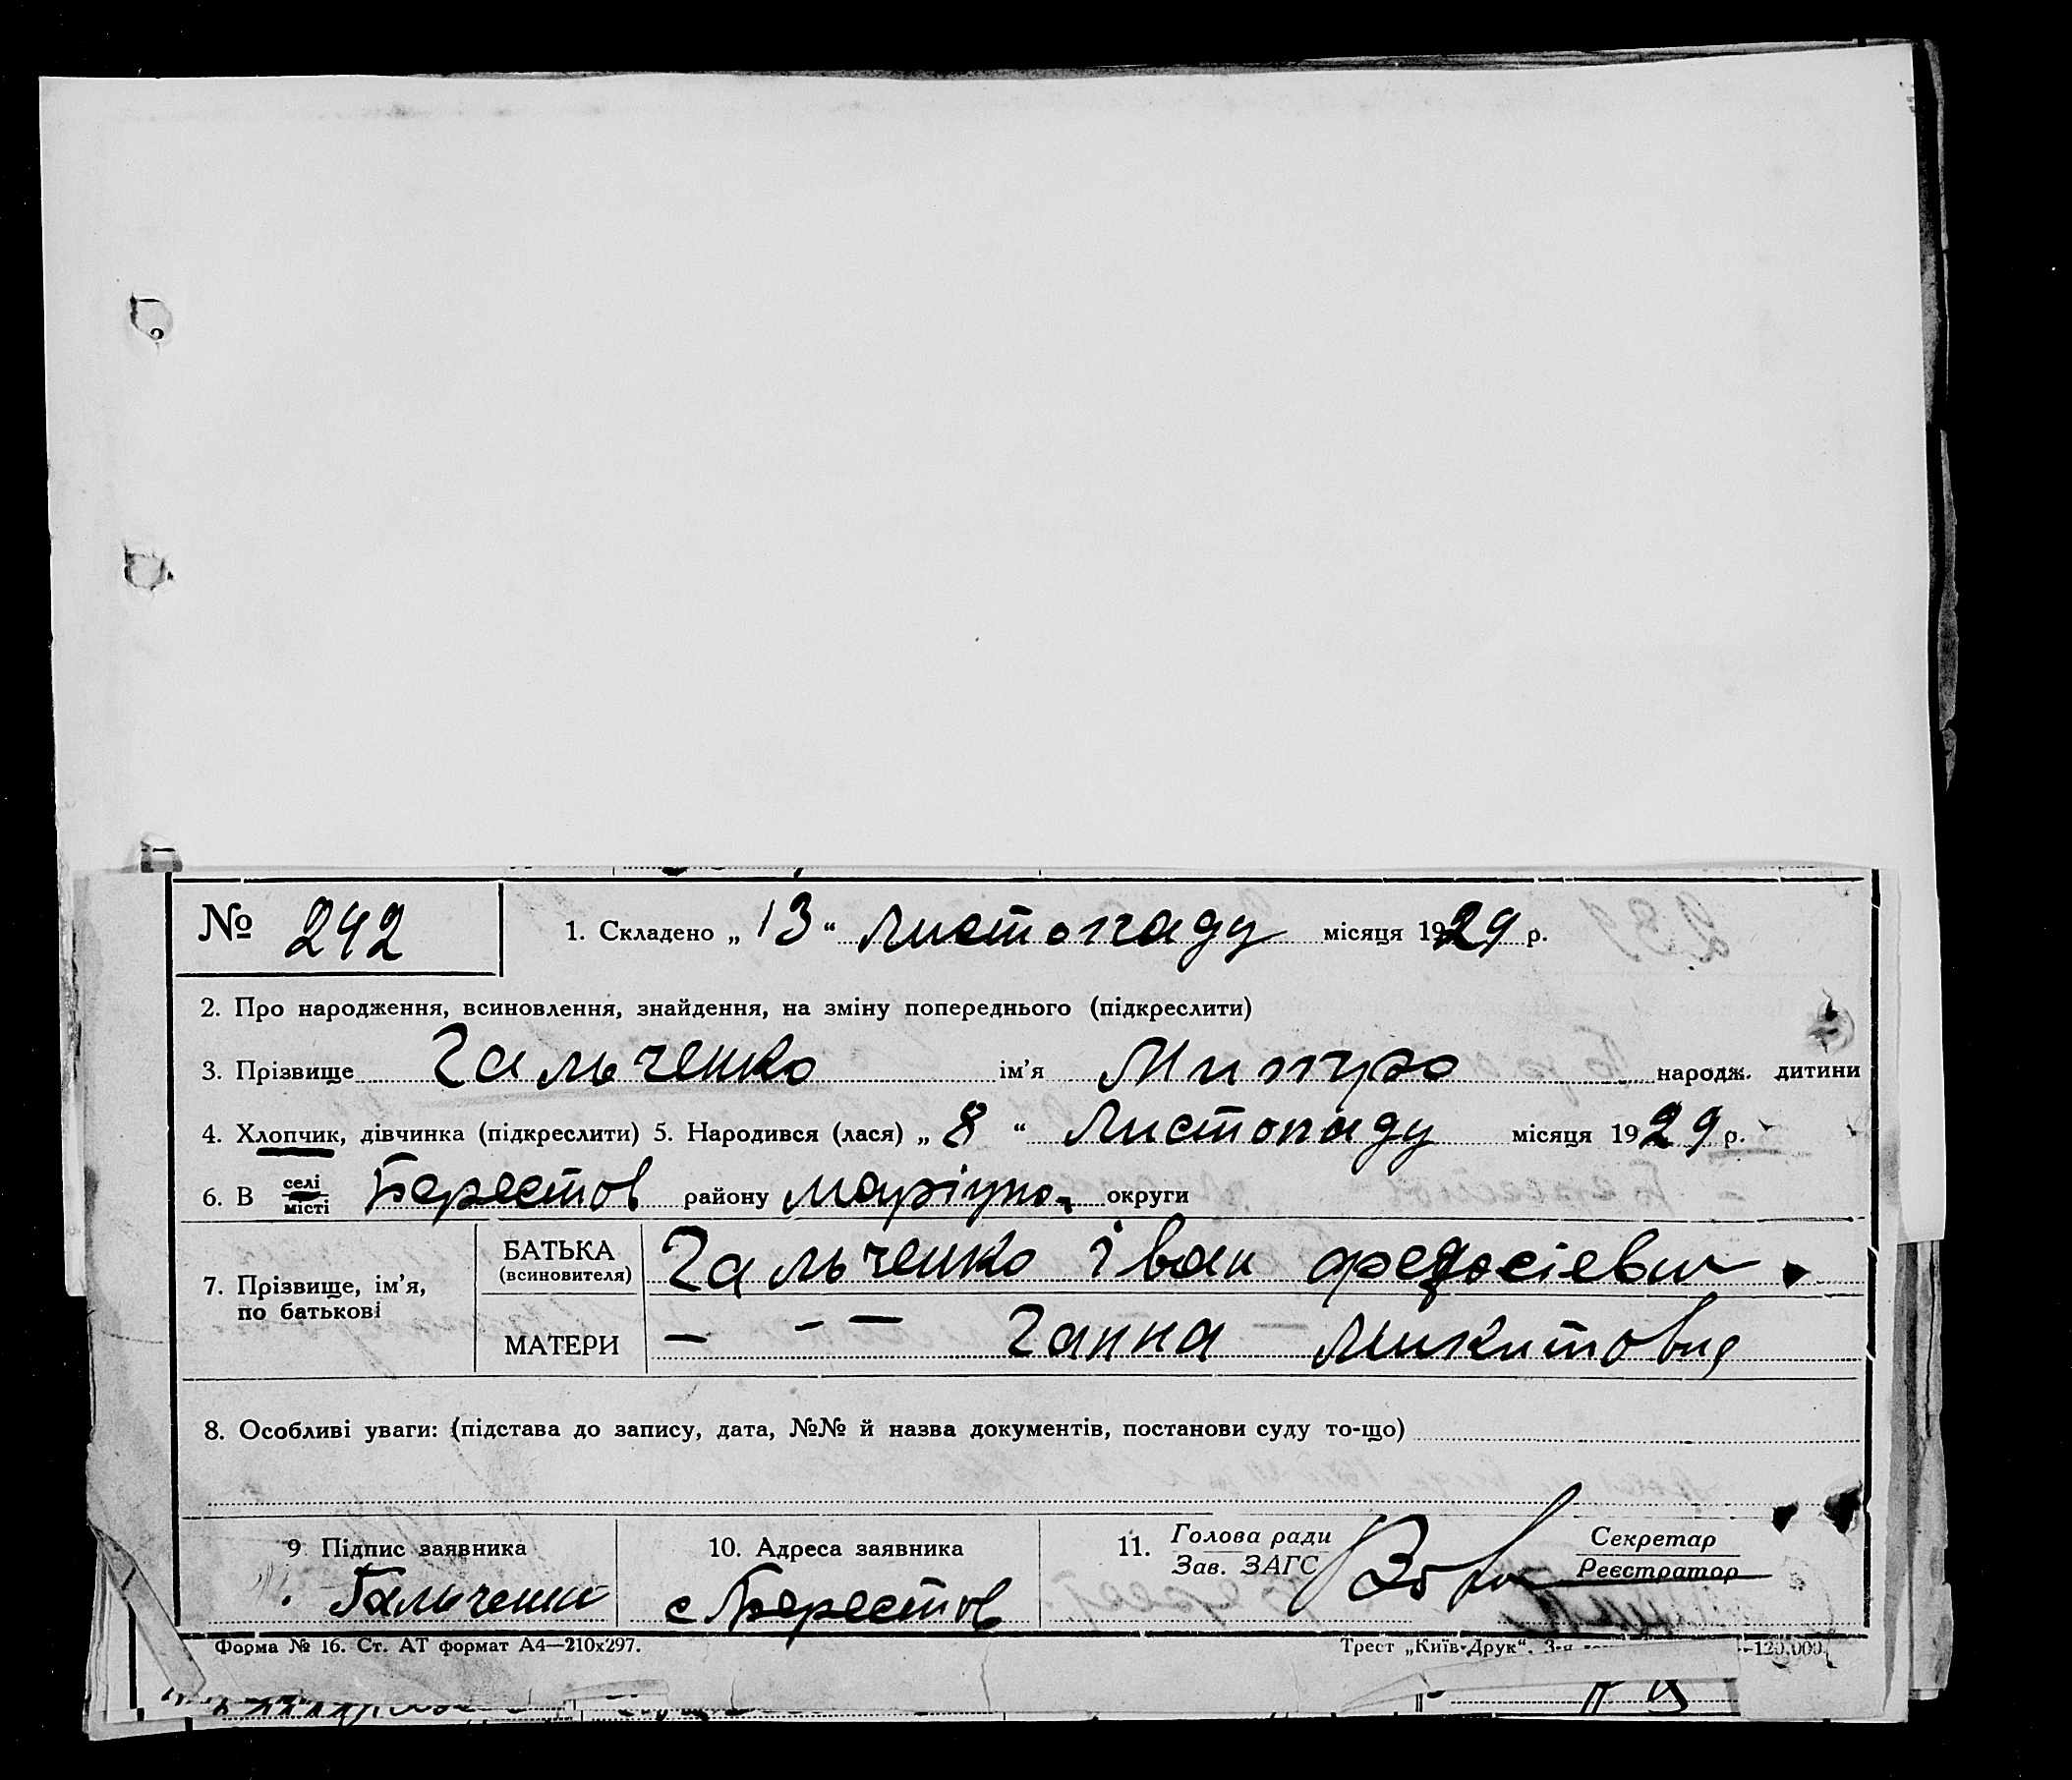 № 242
1. Складено „ 13 “ листопаду місяця 1929 р.
2. Про народження, всиновлення, знайдення, на зміну попереднього (підкреслити)
3. Прізвище Гальченко ім’я народж. дитини
4. Хлопчик, дівчинка (підкреслити) 5. Народився (лася) „ 8 “ Листопаду місяця 1929 р.
6. В селі місті Берестов району Маріуп. округи
7. Прізвище, ім’я, по батькові
БАТЬКА (всиновителя) Гальченко Іван Федосієвич
МАТЕРИ — - — Ганна Микитовна
8. Особливі уваги: (підстава до запису, дата, №№ й назва документів, постанови суду то-що)
9 Підпис заявника
Гальченко
10. Адреса заявника
с Берестов
11. Голова ради
Зав. ЗАГС
Секретар
Реєстратор
Форма № 16. Ст. АТ формат А4—210х297.
Трест „Київ-Друк“. 3-я —120.000.